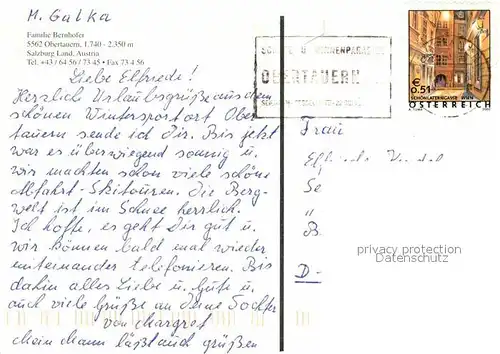 M. Galka
Familie Bernhofer
5562 Obertauern, 1.740 - 2.350 m
Salzburg Land, Austria
Tel. +43 / 64 56 / 73 45 • Fax 73 4 56
Liebe Elfriede!
Herzlich Urlaubsgrüße aus dem
schönen Wintersportort Ober
tauern sende ich Dir. Bis jetzt
war es überwiegend sonnig u.
wir machten schon viele schöne
Abfahrt-Skitouren. Die Berg-
welt ist im Schnee herrlich.
Ich hoffe, es geht Dir gut u.
wir können bald mal wieder
miteinander telefonieren. Bis
dahin alles Liebe u. Gute u.
auch viele Grüße an Deine Tochter
von Margret
Mein Mann läßt auch grüßen
OBERTAUERN
€ 0,51
SCHÖNLATERNGASSE, WIEN
ÖSTERREICH
Frau
D-
privacy protection
Datenschutz